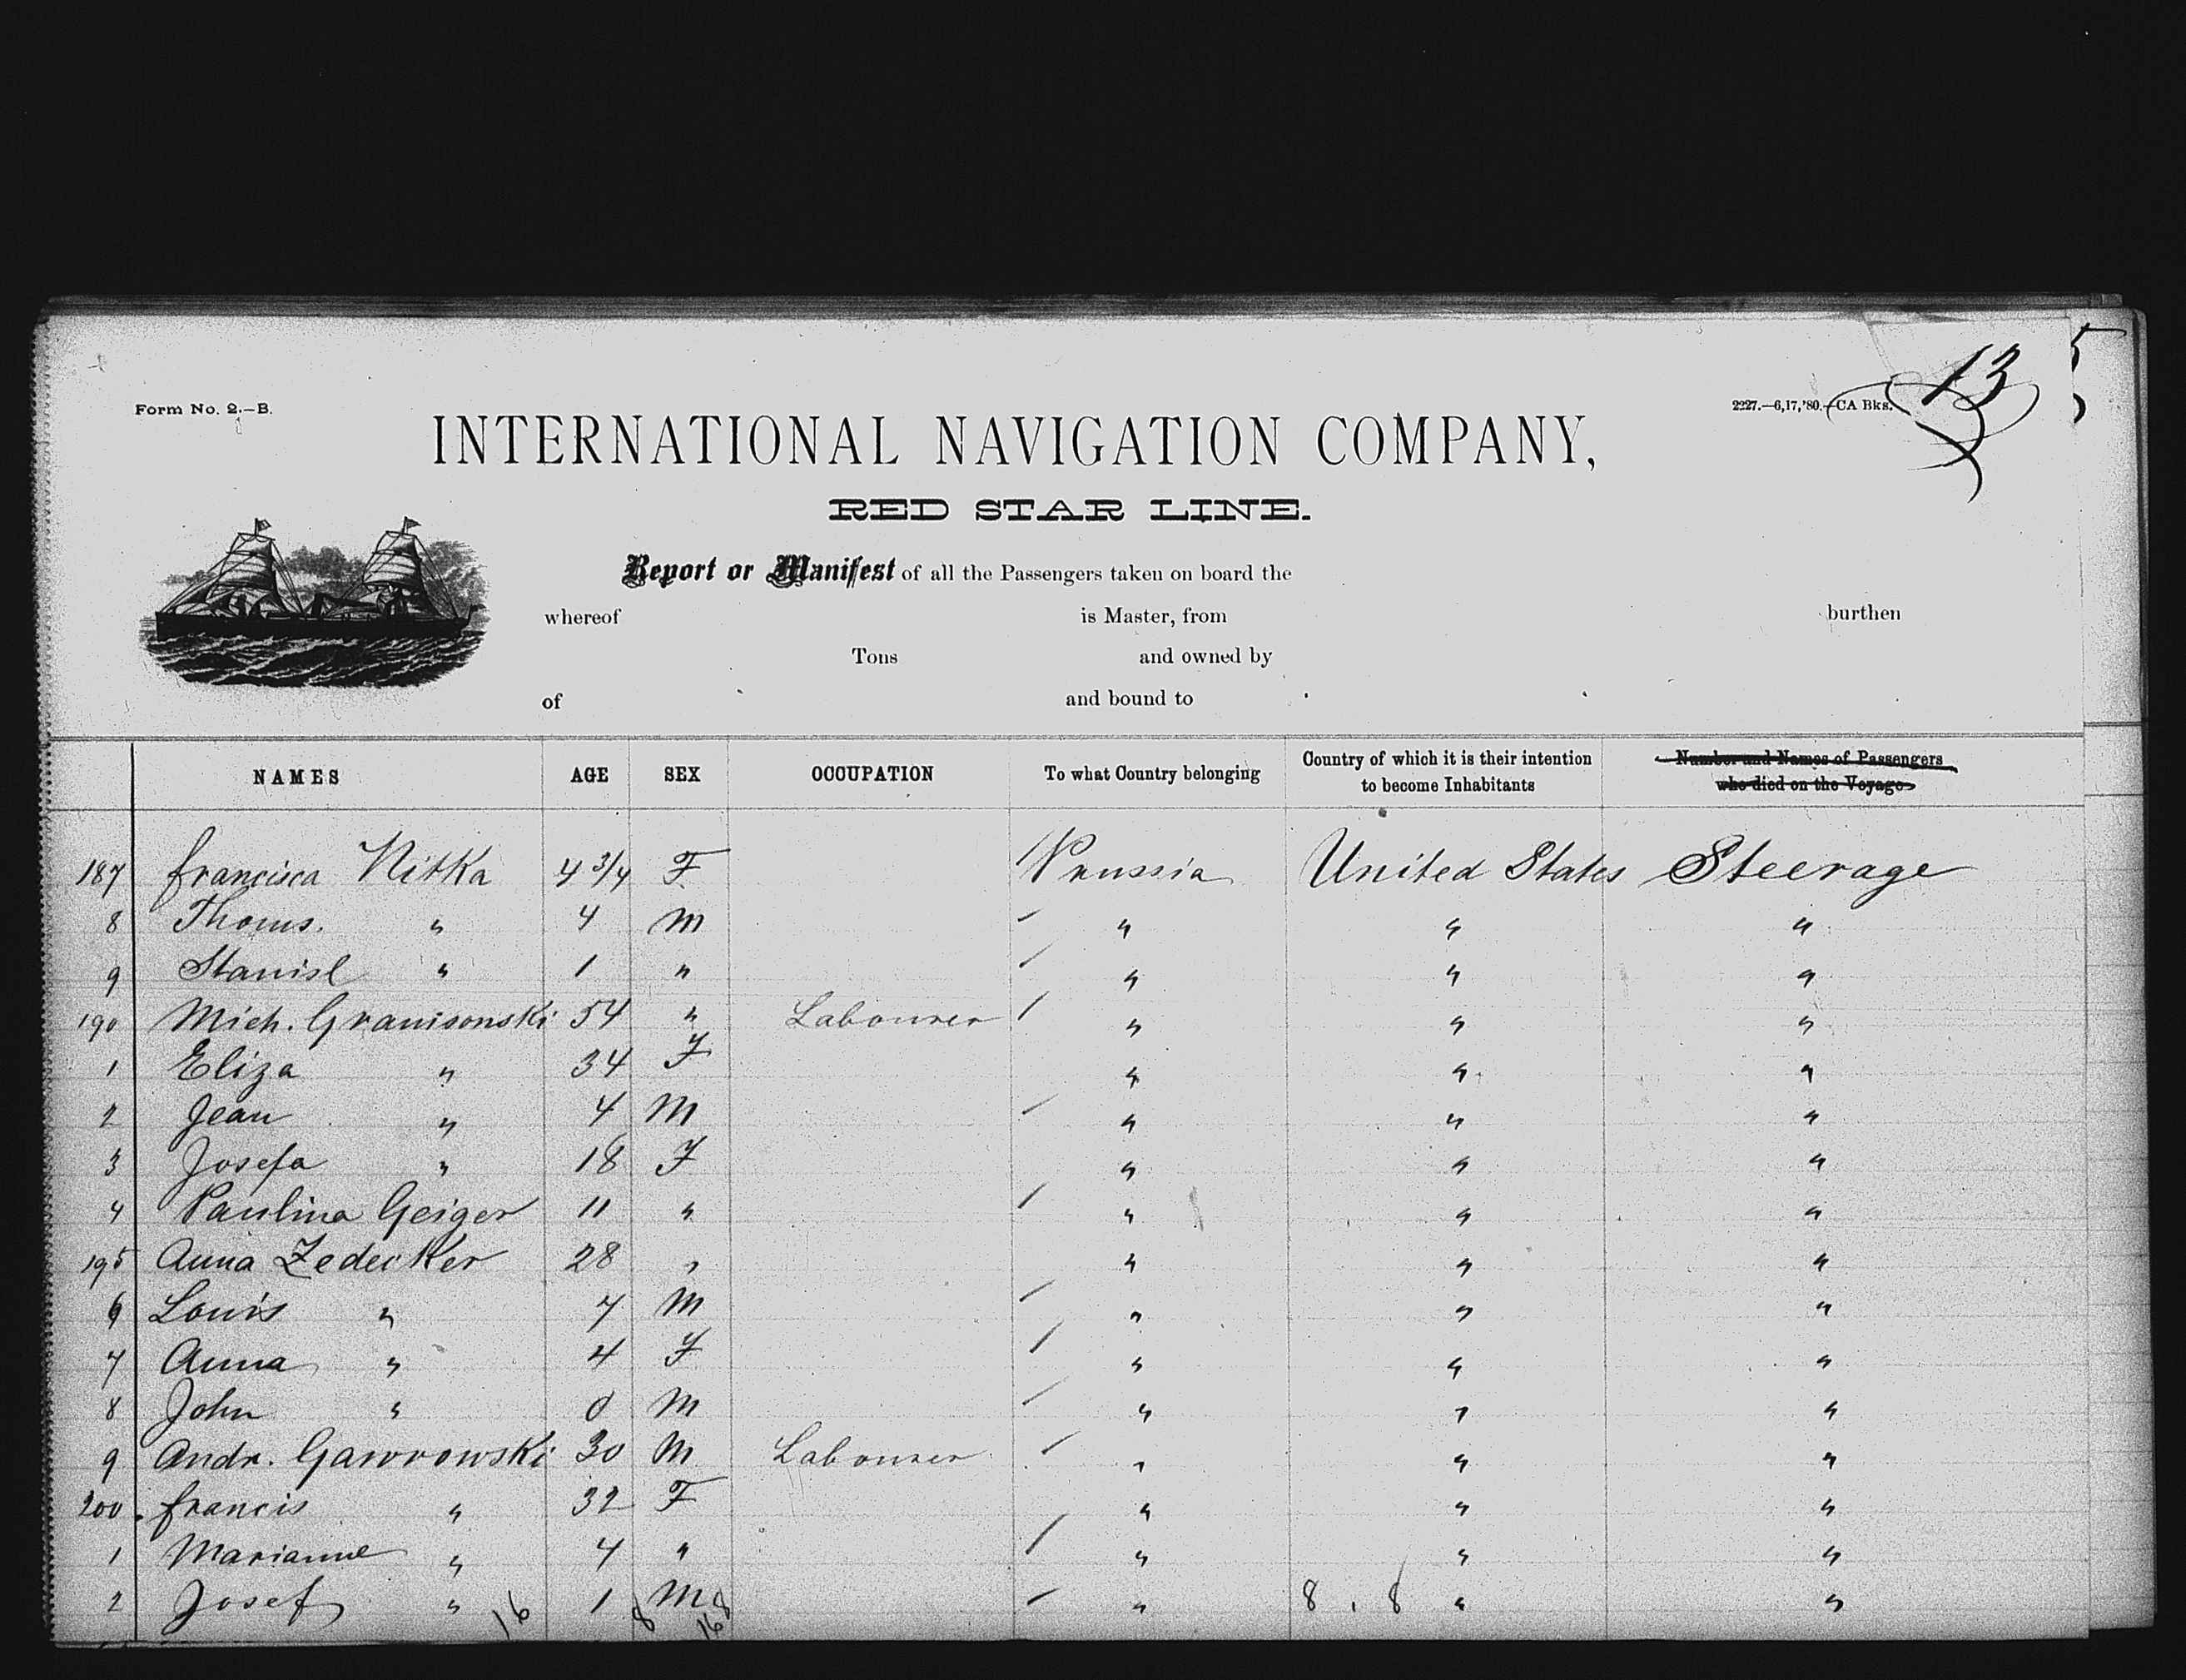 13
5
Form No. 2.—B.
2227.—6,17,'80.—CA Bks.
INTERNATIONAL NAVIGATION COMPANY,
RED STAR LINE.
Report or Manifest of all the Passengers taken on board the
whereof is Master, from burthen
Tons and owned by
of and bound to
NAMES AGE SEX OCCUPATION To what Country belonging Country of which it is their intention to become Inhabitants Number and Names of Passengers who died on the Voyage
187 Francisca Nitka 4 3/4 F Prussia United States Steerage
8 Thoms. " 4 M " " "
9 Stanisl " 1 " " " "
190 Mich. Granisonski 54 " Labourer " " "
1 Eliza " 34 F " " "
2 Jean " 4 M " " "
3 Josefa " 18 F " " "
4 Paulina Geiger 11 " " " "
195 Anna Zedecker 28 " " " "
6 Louis " 7 M " " "
7 Anna " 4 F " " "
8 John " 0 M " " "
9 Andr. Gawrowski 30 M Labourer " " "
200 Francis " 32 F " " "
1 Marianne " 4 " " " "
2 Josef " 1 M " " "
16 8 8 168 8 . 8